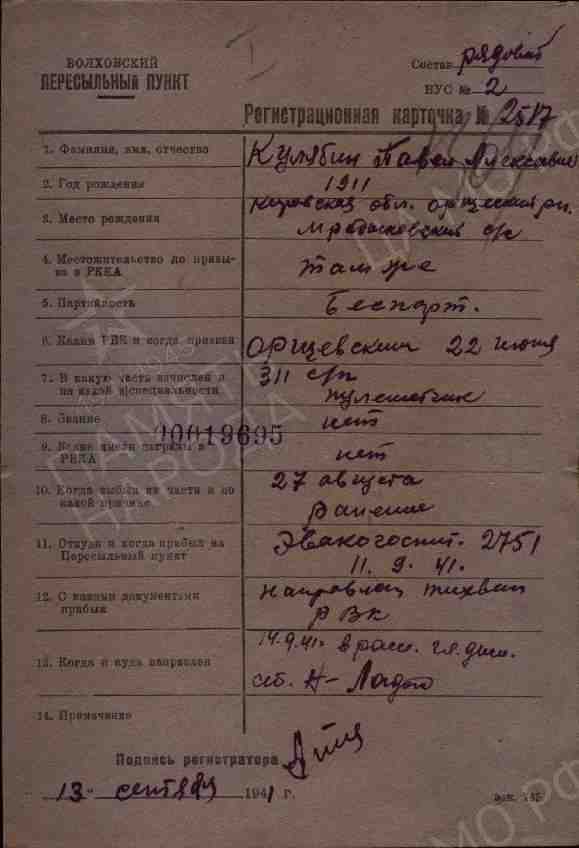 ВОЛХОВСКИЙ
ПЕРЕСЫЛЬНЫЙ ПУНКТ
Состав рядовой
ВУС № 2
Регистрационная карточка № 2517
1. Фамилия, имя, отчество Кулябин Павел
2. Год рождения 1911
3. Место рождения Кировская обл.
с/с
4. Местожительство до призы-
ва в РККА там же
5. Партийность Беспарт.
6. Каким РВК и когда призван Оричевским 22 июня
7. В какую часть зачислен и 311 с/п
на какой в/специальности пулеметчик
8. Звание нет
00019695
9. Какие имеет награды в
РККА нет
10. Когда выбыл из части и по 27 августа
какой причине ранение
11. Откуда и когда прибыл на Эвакогоспит. 2751
Пересыльный пункт 11. 9. 41.
12. С какими документами
прибыл РВК
14.9.41. в расп.
13. Когда и куда направлен
ст. Н-Ладога
14. Примечание
Подпись регистратора
13 сентября 1941 г.
Зак.
ПАМЯТЬ
НАРОДА
ЦА МО РФ